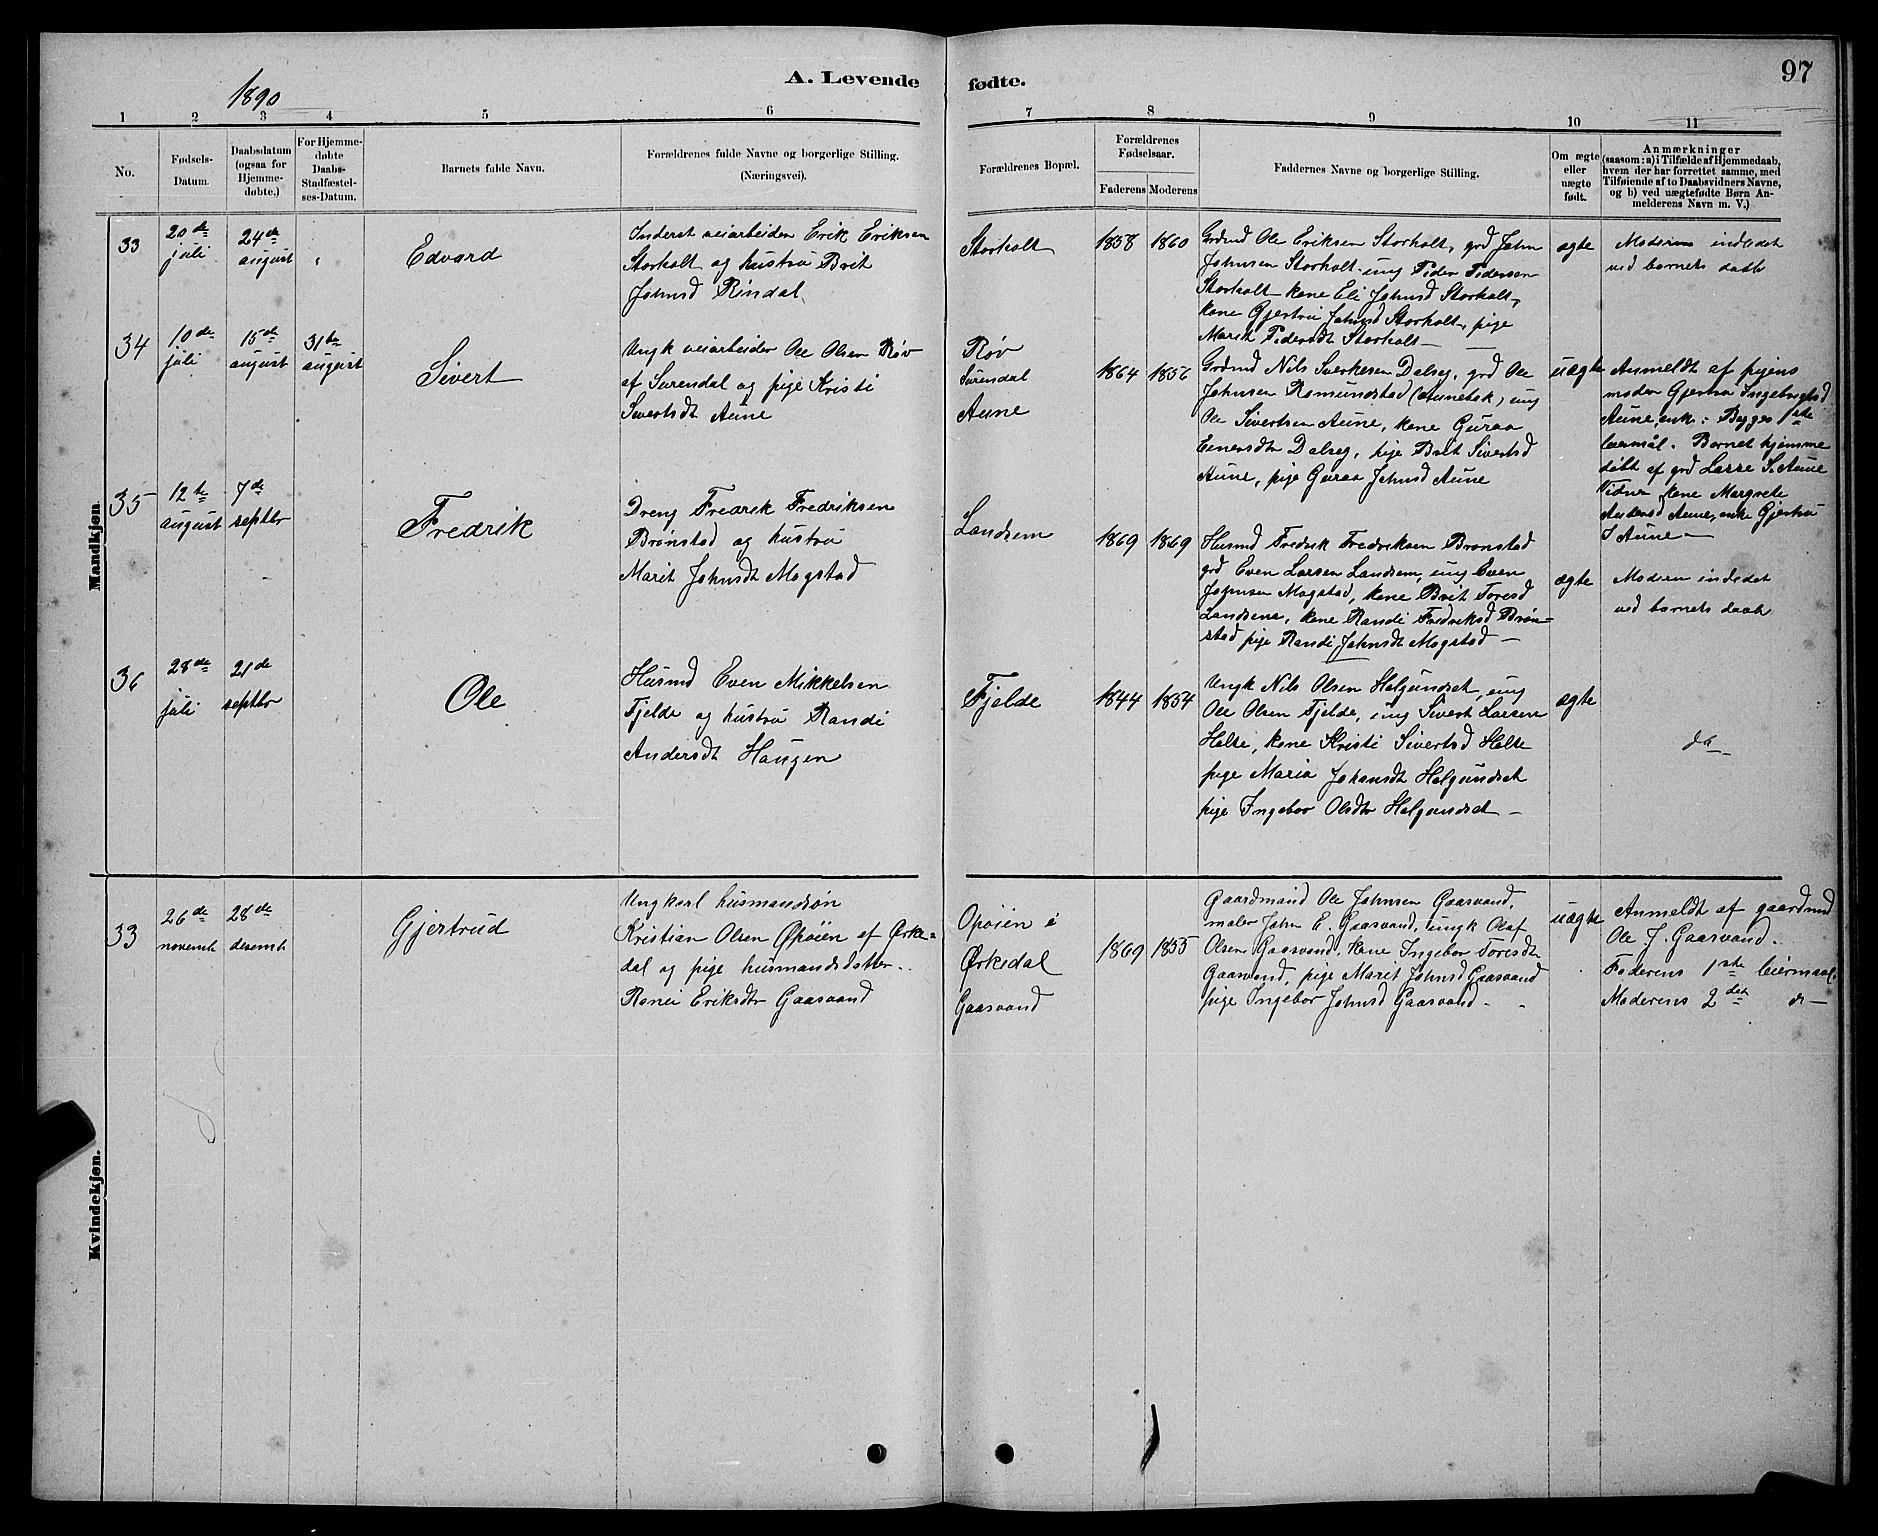 97
A. Levende fødte.
1890
1 2 3 4 5 6 7 8 9 10 11
No.
Fødsels-
Datum.
Daabsdatum
(ogsaa for
Hjemme-
døbte.)
For Hjemme-
døbte
Daabs-
Stadfæstel-
ses-Datum.
Barnets fulde Navn.
Forældrenes fulde Navne og borgerlige Stilling.
(Næringsvei).
Forældrenes Bopæl.
Forældrenes
Fødselsaar.
Faderens Moderens
Faddernes Navne og borgerlige Stilling.
Om ægte
eller
uægte
født.
Anmærkninger
(saasom: a) i Tilfælde af Hjemmedaab,
hvem der har forrettet samme, med
Tilføiende af to Daabsvidners Navne,
og b) ved uægtefødte Børn An-
melderens Navn m. V.)
Mandkjøn.
33
20de
juli
24de
august
Edvard
Inderst veiarbeider Erik Eriksen
Storholt og hustru Brit
Johnsd Rindal
Storholt
1858 1860
Grdmd Ole Eriksen Storholt, grd John
Johnsen Storholt, ung Peder Pedersen
Storholt kone Eli Johnsd Storholt,
kone Gjertru Johnsd Storholt, pige
Marit Pedersdt Storholt
ægte
Moderen indledet
ved barnets daab
34
10de
juli
15de
august
31te
august
Sivert
Ungk veiarbeider Ole Olsen Røv
af Surendal og pige Kristi
Sivertsdt Aune
Røv
Surendal
Aune
1864 1856
Grdmd Nils Sverkesen Dalseg, grd Ole
Johnsen Romundstad (Aunebak) ung
Ole Sivertsen Aune, kone Guraa
Einersdtr Dalseg, pige Brit Sivertsd
Aune, pige Guraa Johnsd Aune
uægte
Anmeldt af pigens
moder Gjertru Ingebrigtsd
Aune, enke: Begges 1ste
leiermål. Barnet hjemme
døbt af grd Lasse S. Aune
Vidner kone Margrete
Andersd Aune, enke Gjertru
I Aune
35
12te
august
7de
septbr
Fredrik
Dreng Fredrik Fredriksen
Brønstad og hustru
Marit Johnsdt Mogstad
Landsem
1869 1869
Husmd Fredrik Fredriksen Brønstad
grd Even Larsen Landsem, ung Even
Johnsen Mogstad, kone Brit Toresd
Landsem, kone Randi Fredriksd Brøn-
stad pige Randi Johnsdt Mogstad
ægte
Moderen indledet
ved barnets daab
36
28de
juli
21de
septbr
Ole
Husmd Even Mikkelsen
Fjelde og hustru Randi
Andersdt Haugen
Fjelde
1844 1854
Ungk Nils Olsen Helgundset, ung
Ole Olsen Fjelde, ung Sivert Larsen
Holte, kone Kristi Sivertsd Holte
pige Maria Johansdt Helgundset
pige Ingebor Olsdtr Helgundset
ægte
do
Kvindekjøn.
33
26de
novemb
28de
desemb
Gjertrud
Ungkarl husmandsøn
Kristian Olsen Opøien af Ørke-
dal og pige husmandsdatter
Ranei Eriksdtr Gaasvand
Opøien i
Ørkedal
Gaasvand
1869 1855
Gaardmand Ole Johnsen Gaasvand,
maler John E. Gaasvand, ungk Olaf
Olsen Gaasvand, kone Ingebor Toresdt
Gaasvand, pige Marit Johnsd Gaasvand
pige Ingebor Johnsd Gaasvand
uægte
Anmeldt af gaardmd
Ole J. Gaasvand.
Faderens 1ste leiermaal,
Moderens 2det do